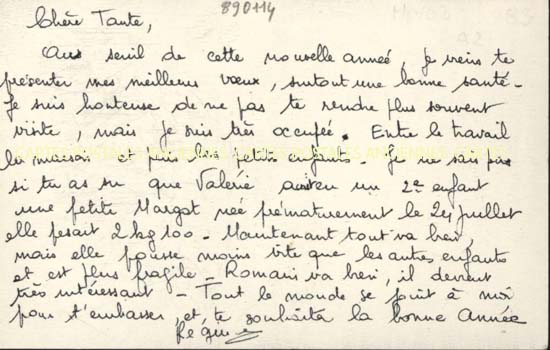 890414
Chère Tante,
Au seuil de cette nouvelle année, je viens te
présenter mes meilleurs vœux, surtout une bonne santé.
Je suis honteuse de ne pas te rendre plus souvent
visite, mais je suis très occupée. Entre le travail
la maison et puis les petits enfants. Je ne sais pas
si tu as su que Valérie a eu un 2e enfant
une petite Margot née prématurement le 24 juillet
elle pesait 2 kg 100 - Maintenant tout va bien,
mais elle pousse moins vite que les autres enfants
et est plus fragile - Romain va bien, il devient
très intéressant - Tout le monde se joint à moi
pour t'embrasser, et te souhaiter la bonne Année
Régine